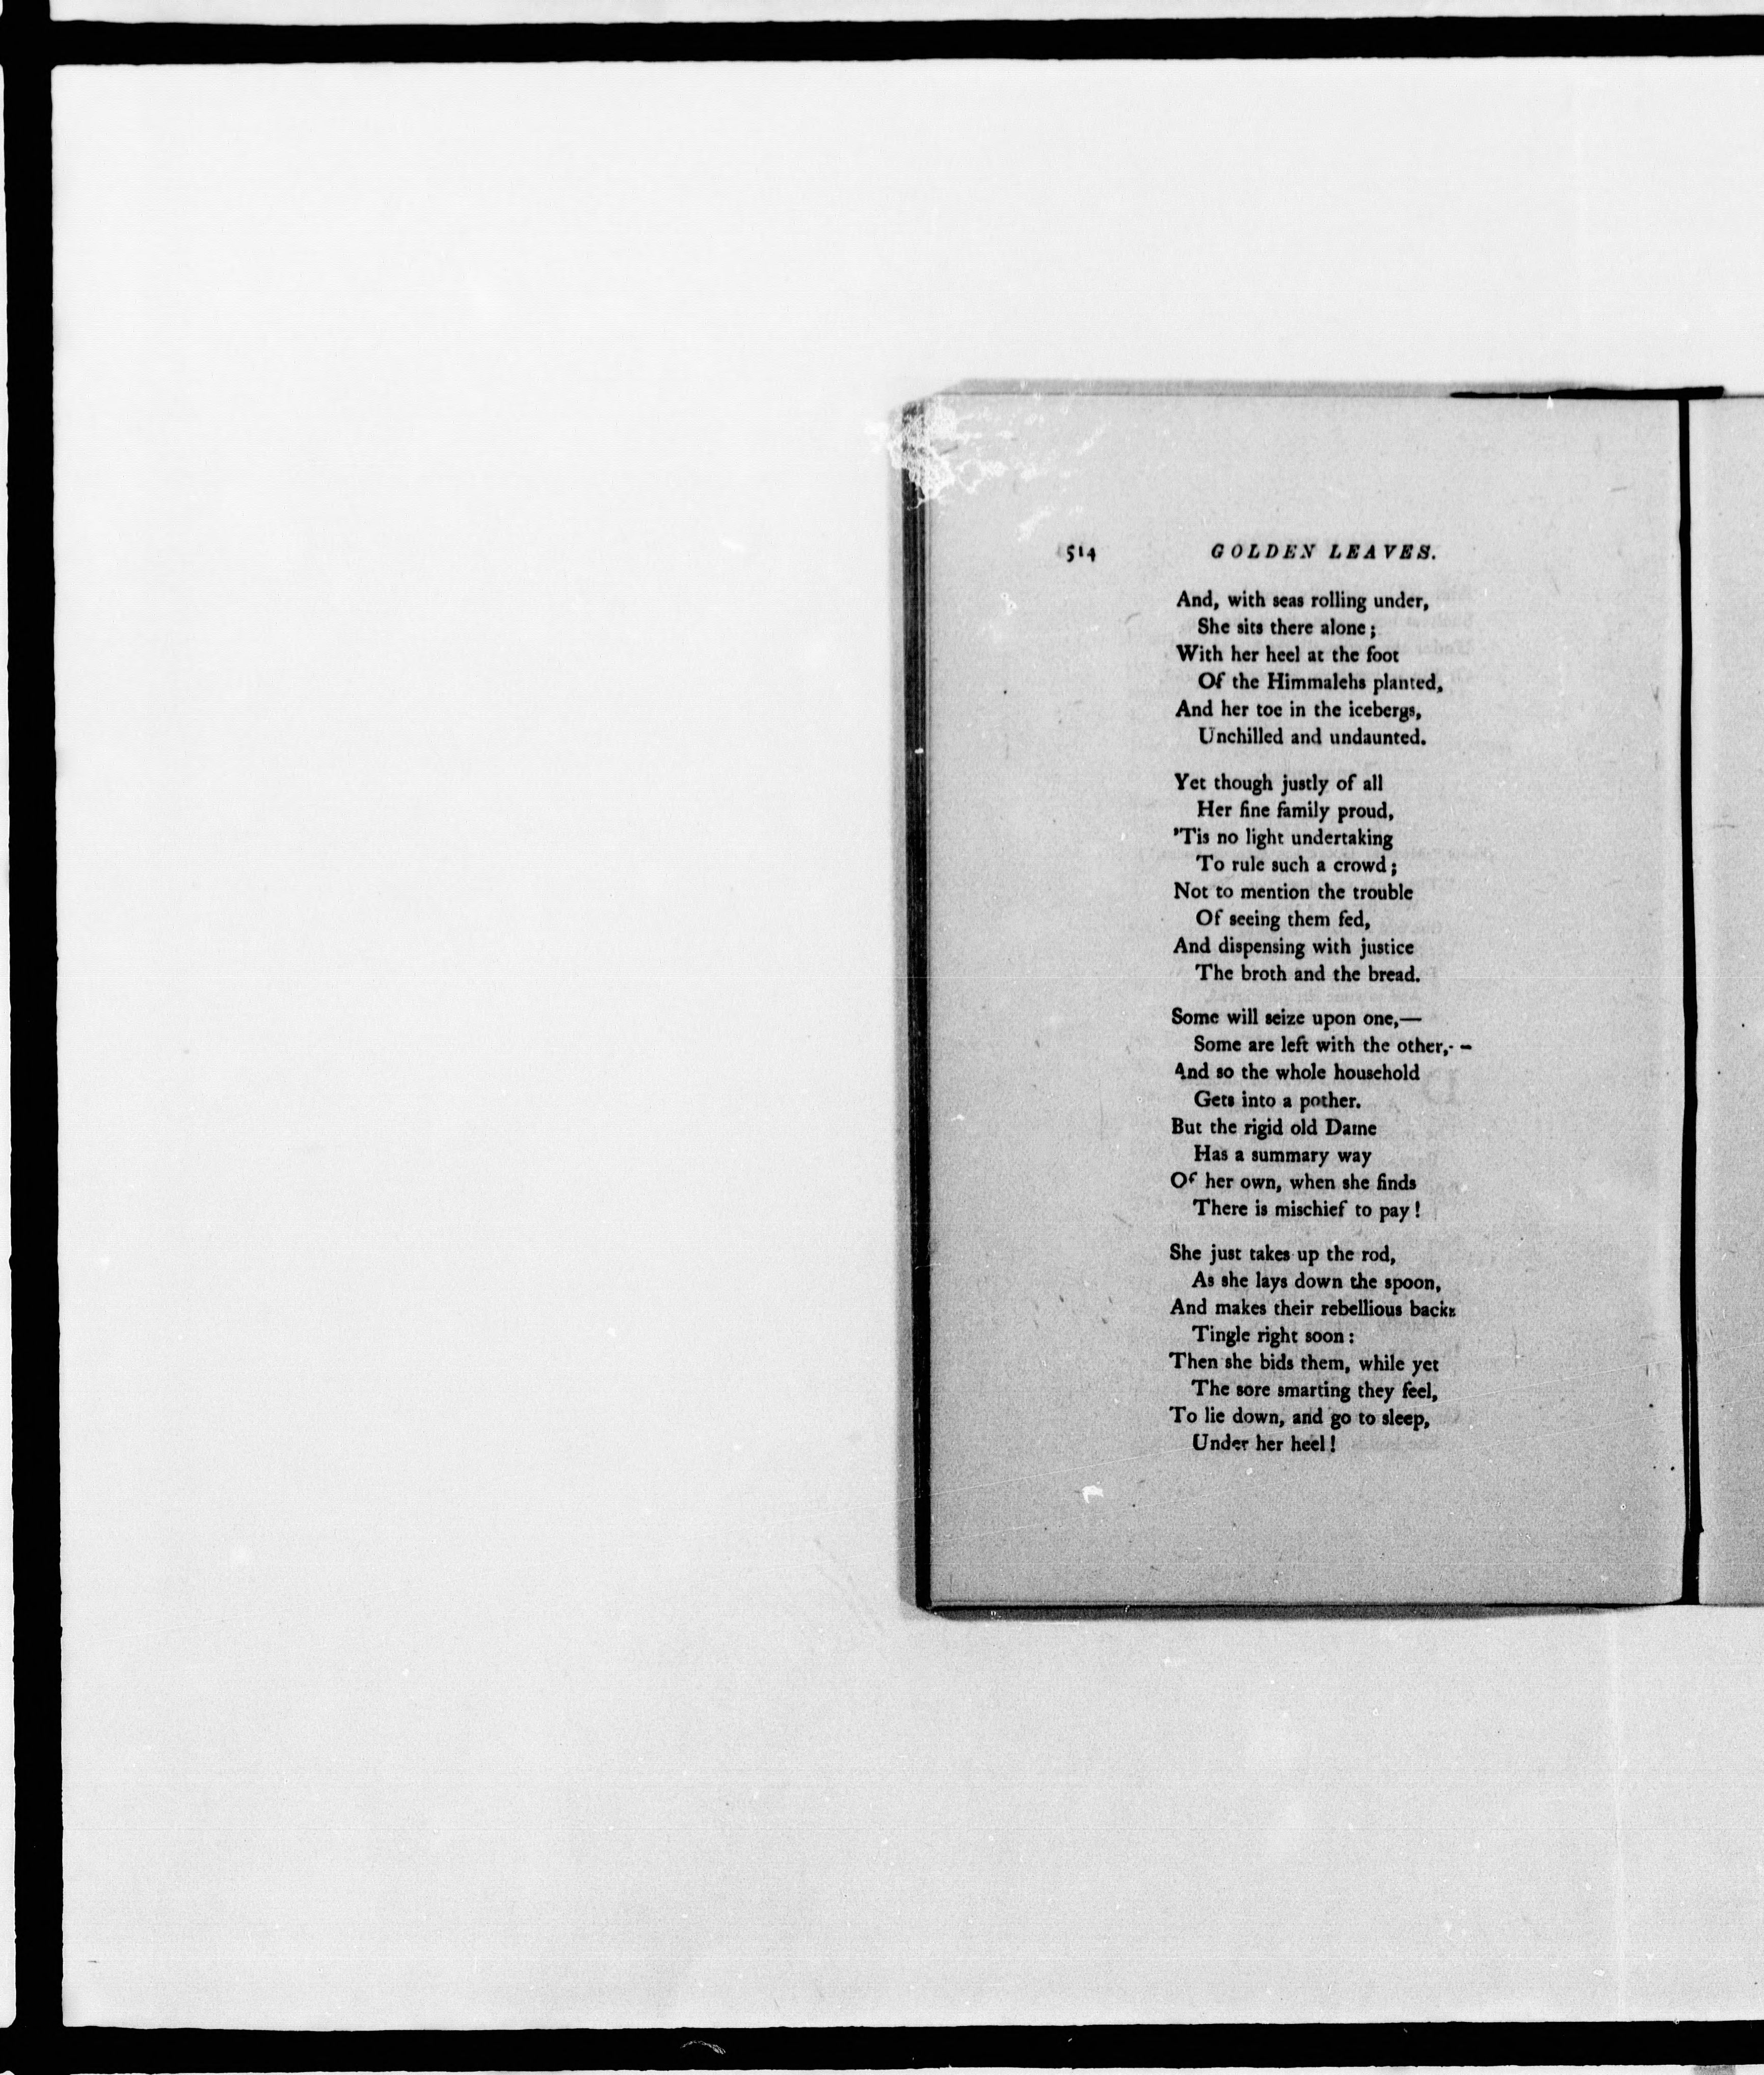 514 GOLDEN LEAVES.
And, with seas rolling under,
She sits there alone;
With her heel at the foot
Of the Himmalehs planted,
And her toe in the icebergs,
Unchilled and undaunted.
Yet though justly of all
Her fine family proud,
'Tis no light undertaking
To rule such a crowd;
Not to mention the trouble
Of seeing them fed,
And dispensing with justice
The broth and the bread.
Some will seize upon one,—
Some are left with the other,—
And so the whole household
Gets into a pother.
But the rigid old Dame
Has a summary way
Of her own, when she finds
There is mischief to pay!
She just takes up the rod,
As she lays down the spoon,
And makes their rebellious backs
Tingle right soon:
Then she bids them, while yet
The sore smarting they feel,
To lie down, and go to sleep,
Under her heel!